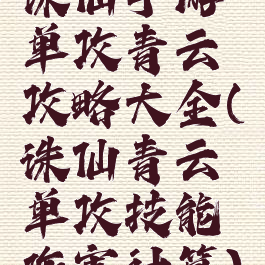 诛仙手游
单攻青云
攻略大全(
诛仙青云
单攻技能